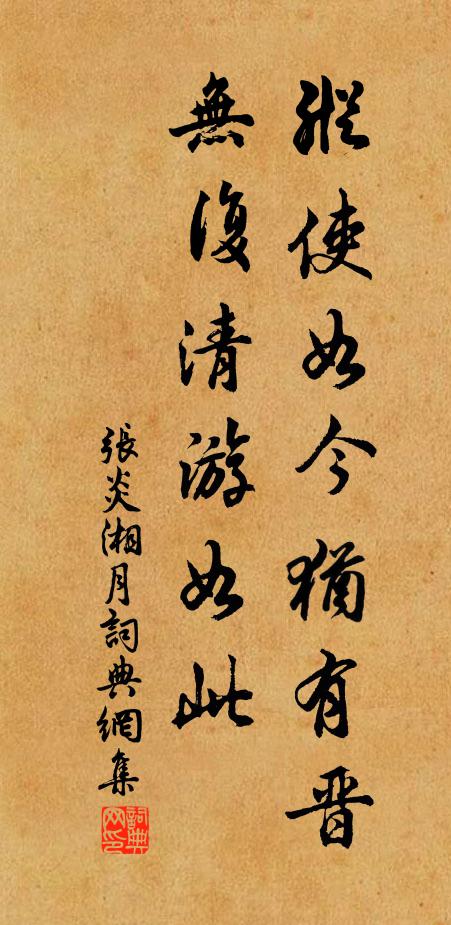 縱使如今猶有晋
無復清游如此
張炎湘月詞典網集
詞典网印